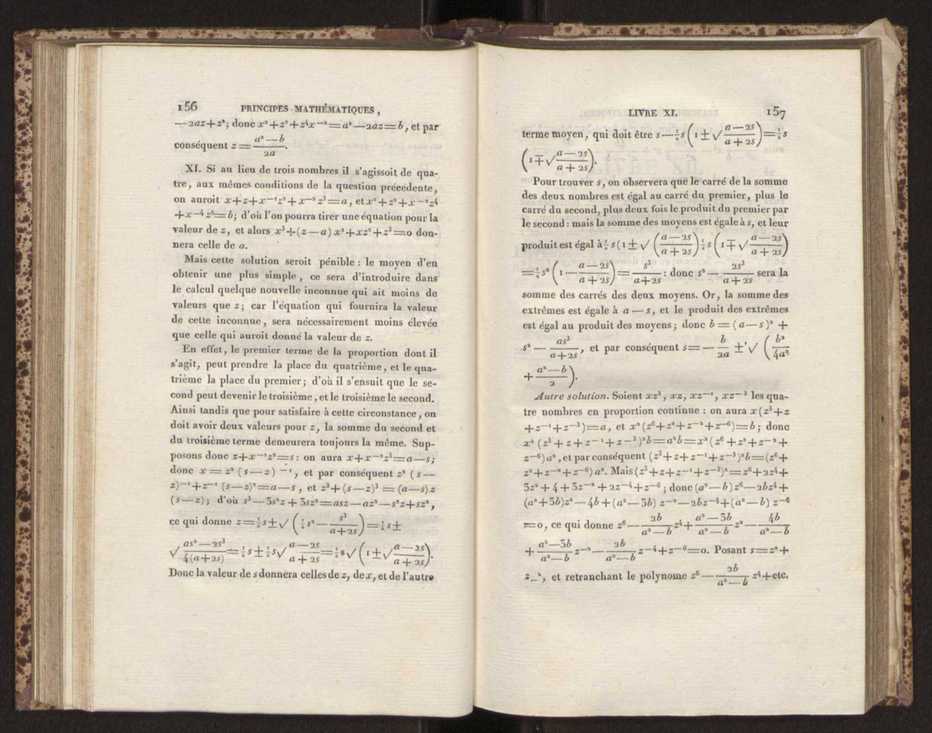 156 PRINCIPES MATHÉMATIQUES,
—2az+z²; donc x²+z²+z⁴x⁻²=a²—2az=b, et par
conséquent z = (a²—b)/2a.
XI. Si au lieu de trois nombres il s'agissoit de qua-
tre, aux mêmes conditions de la question précédente,
on auroit x+z+x⁻¹z²+x⁻² z³=a, et x²+z²+x⁻²z⁴
+x⁻⁴ z⁶=b; d'où l'on pourra tirer une équation pour la
valeur de z, et alors x³+(z—a) x²+xz²+z³=0 don-
nera celle de a.
Mais cette solution seroit pénible : le moyen d'en
obtenir une plus simple, ce sera d'introduire dans
le calcul quelque nouvelle inconnue qui ait moins de
valeurs que z; car l'équation qui fournira la valeur
de cette inconnue, sera nécessairement moins élevée
que celle qui auroit donné la valeur de z.
En effet, le premier terme de la proportion dont il
s'agit, peut prendre la place du quatrième, et le qua-
trième la place du premier; d'où il s'ensuit que le se-
cond peut devenir le troisième, et le troisième le second.
Ainsi tandis que pour satisfaire à cette circonstance, on
doit avoir deux valeurs pour z, la somme du second et
du troisième terme demeurera toujours la même. Sup-
posons donc z+x⁻¹z²=s : on aura x+x⁻²z³=a—s;
donc x = z² (s—z)⁻¹, et par conséquent z² (s—
z)⁻¹+z⁻¹ (s—z)²=a—s, et z³+(s—z)³ = (a—s)z
(s—z); d'où s³—3s²z+3sz²=asz—az²—s²z+sz²,
ce qui donne z=½s±√(¼s²—s³/(a+2s))=½s±
√(as²—2s³)/(4(a+2s))=½s±½s√(a—2s)/(a+2s)=½s√(1±√(a—2s)/(a+2s)).
Donc la valeur de s donnera celles de z, de x, et de l'autre
LIVRE XI. 157
terme moyen, qui doit être s—½s(1±√(a—2s)/(a+2s))=½s
(1∓√(a—2s)/(a+2s)).
Pour trouver s, on observera que le carré de la somme
des deux nombres est égal au carré du premier, plus le
carré du second, plus deux fois le produit du premier par
le second : mais la somme des moyens est égale à s, et leur
produit est égal à ½ s(1±√((a—2s)/(a+2s))½s(1∓√(a—2s)/(a+2s))
=¼s²(1—(a—2s)/(a+2s))=s³/(a+2s) : donc s²—2s³/(a+2s) sera la
somme des carrés des deux moyens. Or, la somme des
extrêmes est égale à a—s, et le produit des extrêmes
est égal au produit des moyens; donc b=(a—s)² +
s²—as³/(a+2s), et par conséquent s=—b/2a ±√(b²/4a²
+(a²—b)/2).
Autre solution. Soient xz³, xz, xz⁻¹, xz⁻³ les qua-
tre nombres en proportion continue : on aura x(z³+z
+z⁻¹+z⁻³)=a, et x²(z⁶+z²+z⁻²+z⁻⁶)=b; donc
x² (z³+z+z⁻¹+z⁻³)²b=a²b=x²(z⁶+z²+z⁻²+
z⁻⁶)a², et par conséquent (z³+z+z⁻¹+z⁻³)²b=(z⁶+
z²+z⁻²+z⁻⁶)a². Mais (z³+z+z⁻¹+z⁻³)²=z⁶+2z⁴+
3z²+4+3z⁻²+2z⁻⁴+z⁻⁶; donc (a²—b)z⁶—2bz⁴+
(a²+3b)z²—4b+(a²—3b) z⁻²—2bz⁻⁴+(a²—b) z⁻⁶
=0, ce qui donne z⁶—2b/(a²—b) z⁴+(a²—3b)/(a²—b) z²—4b/(a²—b)
+(a²—3b)/(a²—b) z⁻²—2b/(a²—b) z⁻⁴+z⁻⁶=0. Posant s=z²+
z_², et retranchant le polynome z⁶—2b/(a²—b) z⁴+etc.